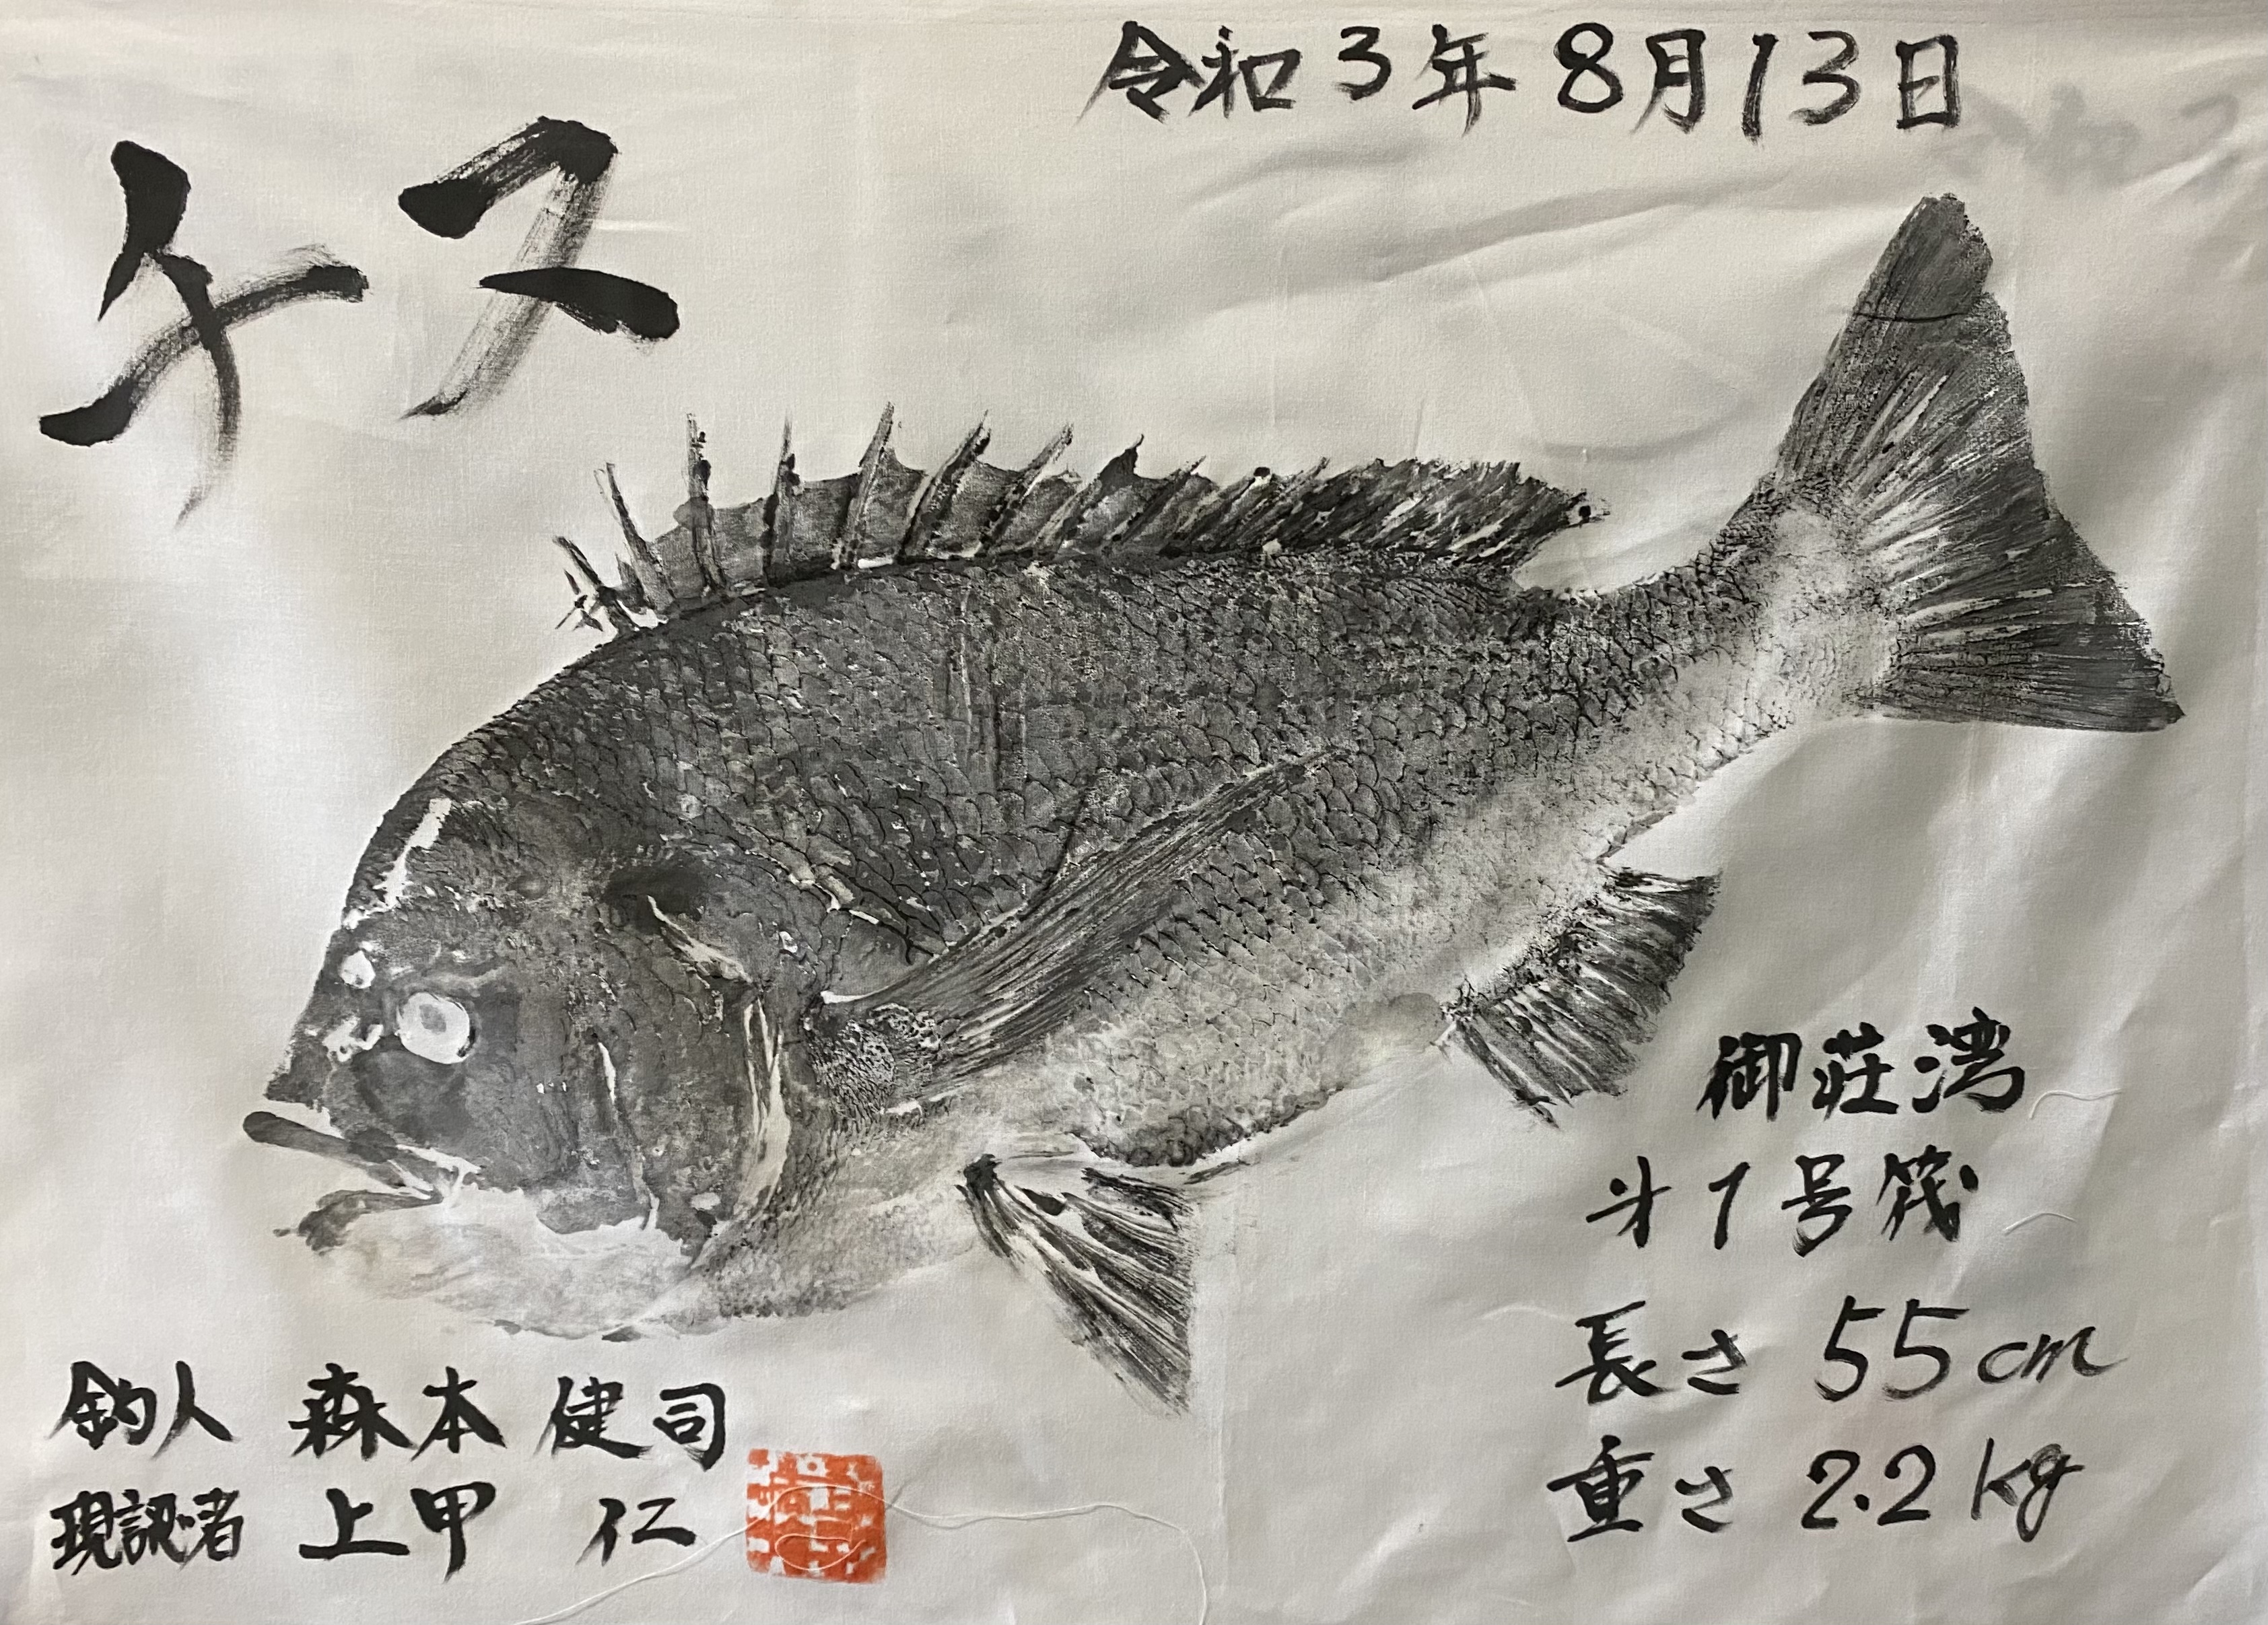 令和3年8月13日
チヌ
御荘湾
才1号筏
長さ 55cm
重さ 2.2kg
釣人 森本健司
現認者 上甲 仁